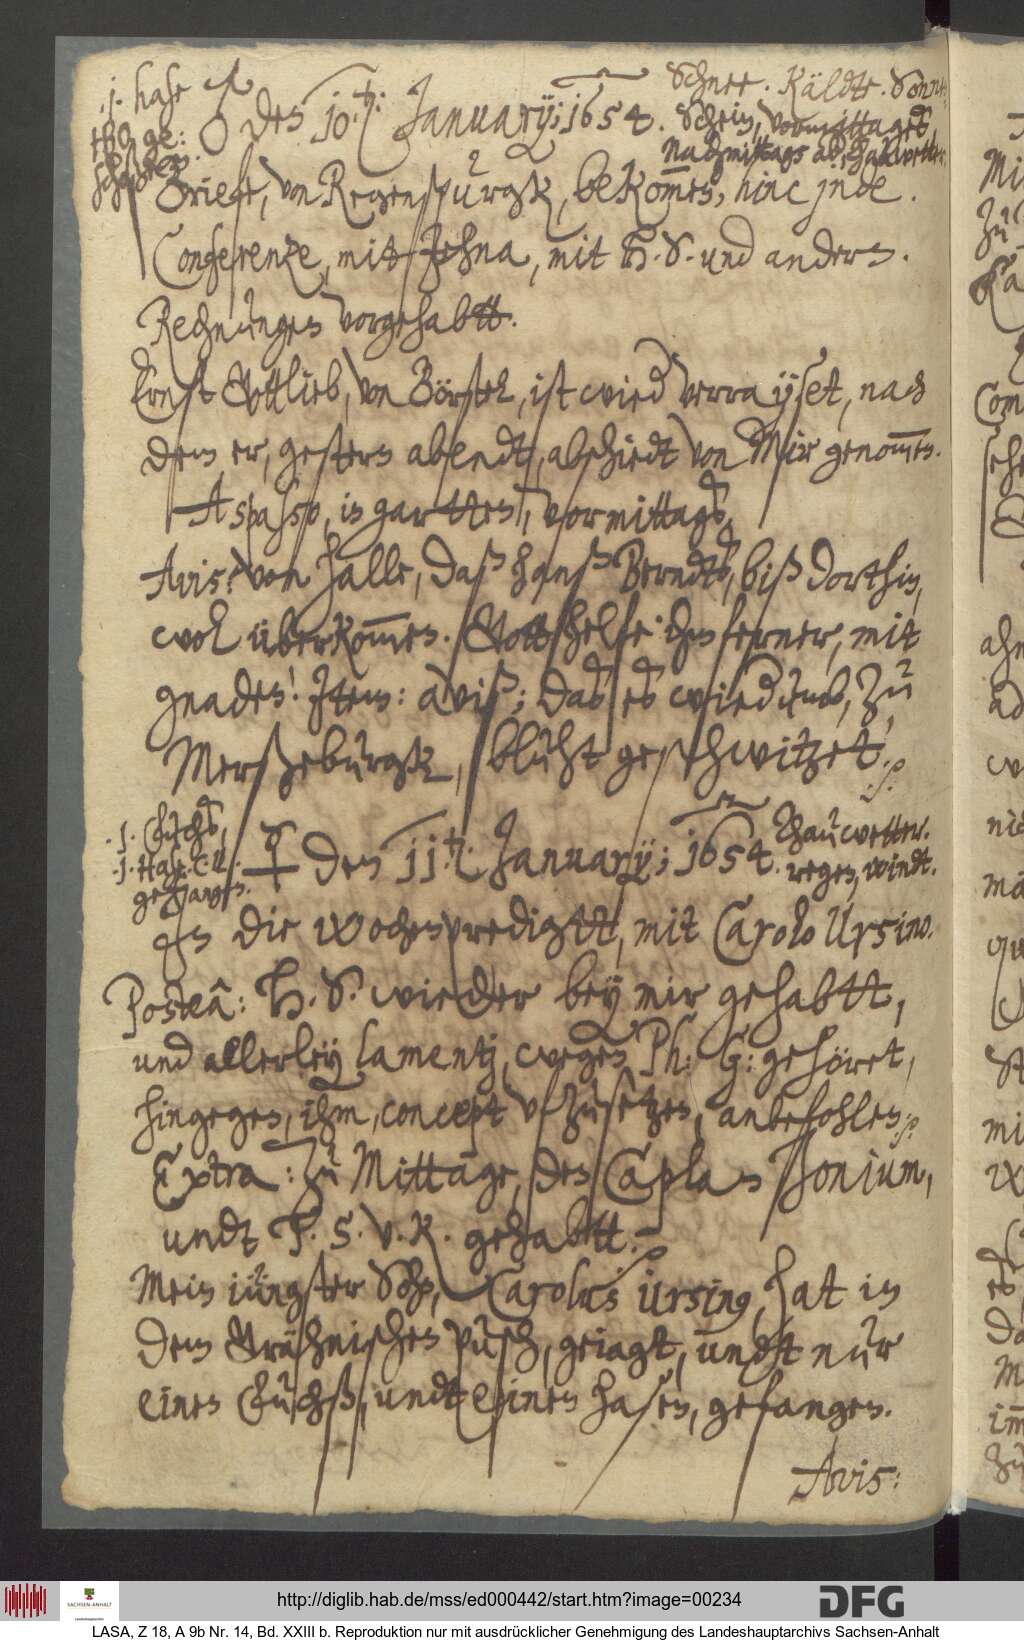 .1. hase
♂ den 10.t: January; 1654.
Schnee. Käldte. Sonne-
Schein, vormittages,
Nachmittags aber, thawwetter.
Briefe, von Regenspurgk, bekommen, hinc inde.
Conferentze, mit Jehna, mit Th. S. und andern.
Rechnungen vorgehabtt.
Ernst Gottlieb, von Börstel, ist wied verrayset, nach
dem er, gestern abendt, abschiedt von Mir genommen.
A spasso, in gartten, vormittags,
Avis: von Halle, daß hanß Berndts, biß dorthin,
wol überkommen. Gott helfe ihm ferner, mit
gnaden! Item: aviß; daß es wiedrumb, zu
Merßeburgk, bluht geschwitzet.
.1. Fuchs,
.1. Hase C. U.
gefangen.
☿ den 11.t: January; 1654.
Thauwetter.
regen, windt.
In die wochenpredigtt, mit Carolo Ursino.
Posteà: Th. S. wieder bey mir gehabtt,
und allerley lamentj, wegen Ph: G: gehöret,
hingegen, ihm, concept ufzusetzen, anbefohlen
Extra: zu Mittage, den Caplan Jonium,
undt T. S. v. R. gehabtt.
Mein iüngster Sohn, Carolus Ursinus, hat in
dem Gröhnischen pusch, geiagt, undt nur
einen Fuchß, undt einen hasen, gefangen.
Avis:
http://diglib.hab.de/mss/ed000442/start.htm?image=00234
SACHSEN-ANHALT
DFG
LASA, Z 18, A 9b Nr. 14, Bd. XXIII b. Reproduktion nur mit ausdrücklicher Genehmigung des Landeshauptarchivs Sachsen-Anhalt